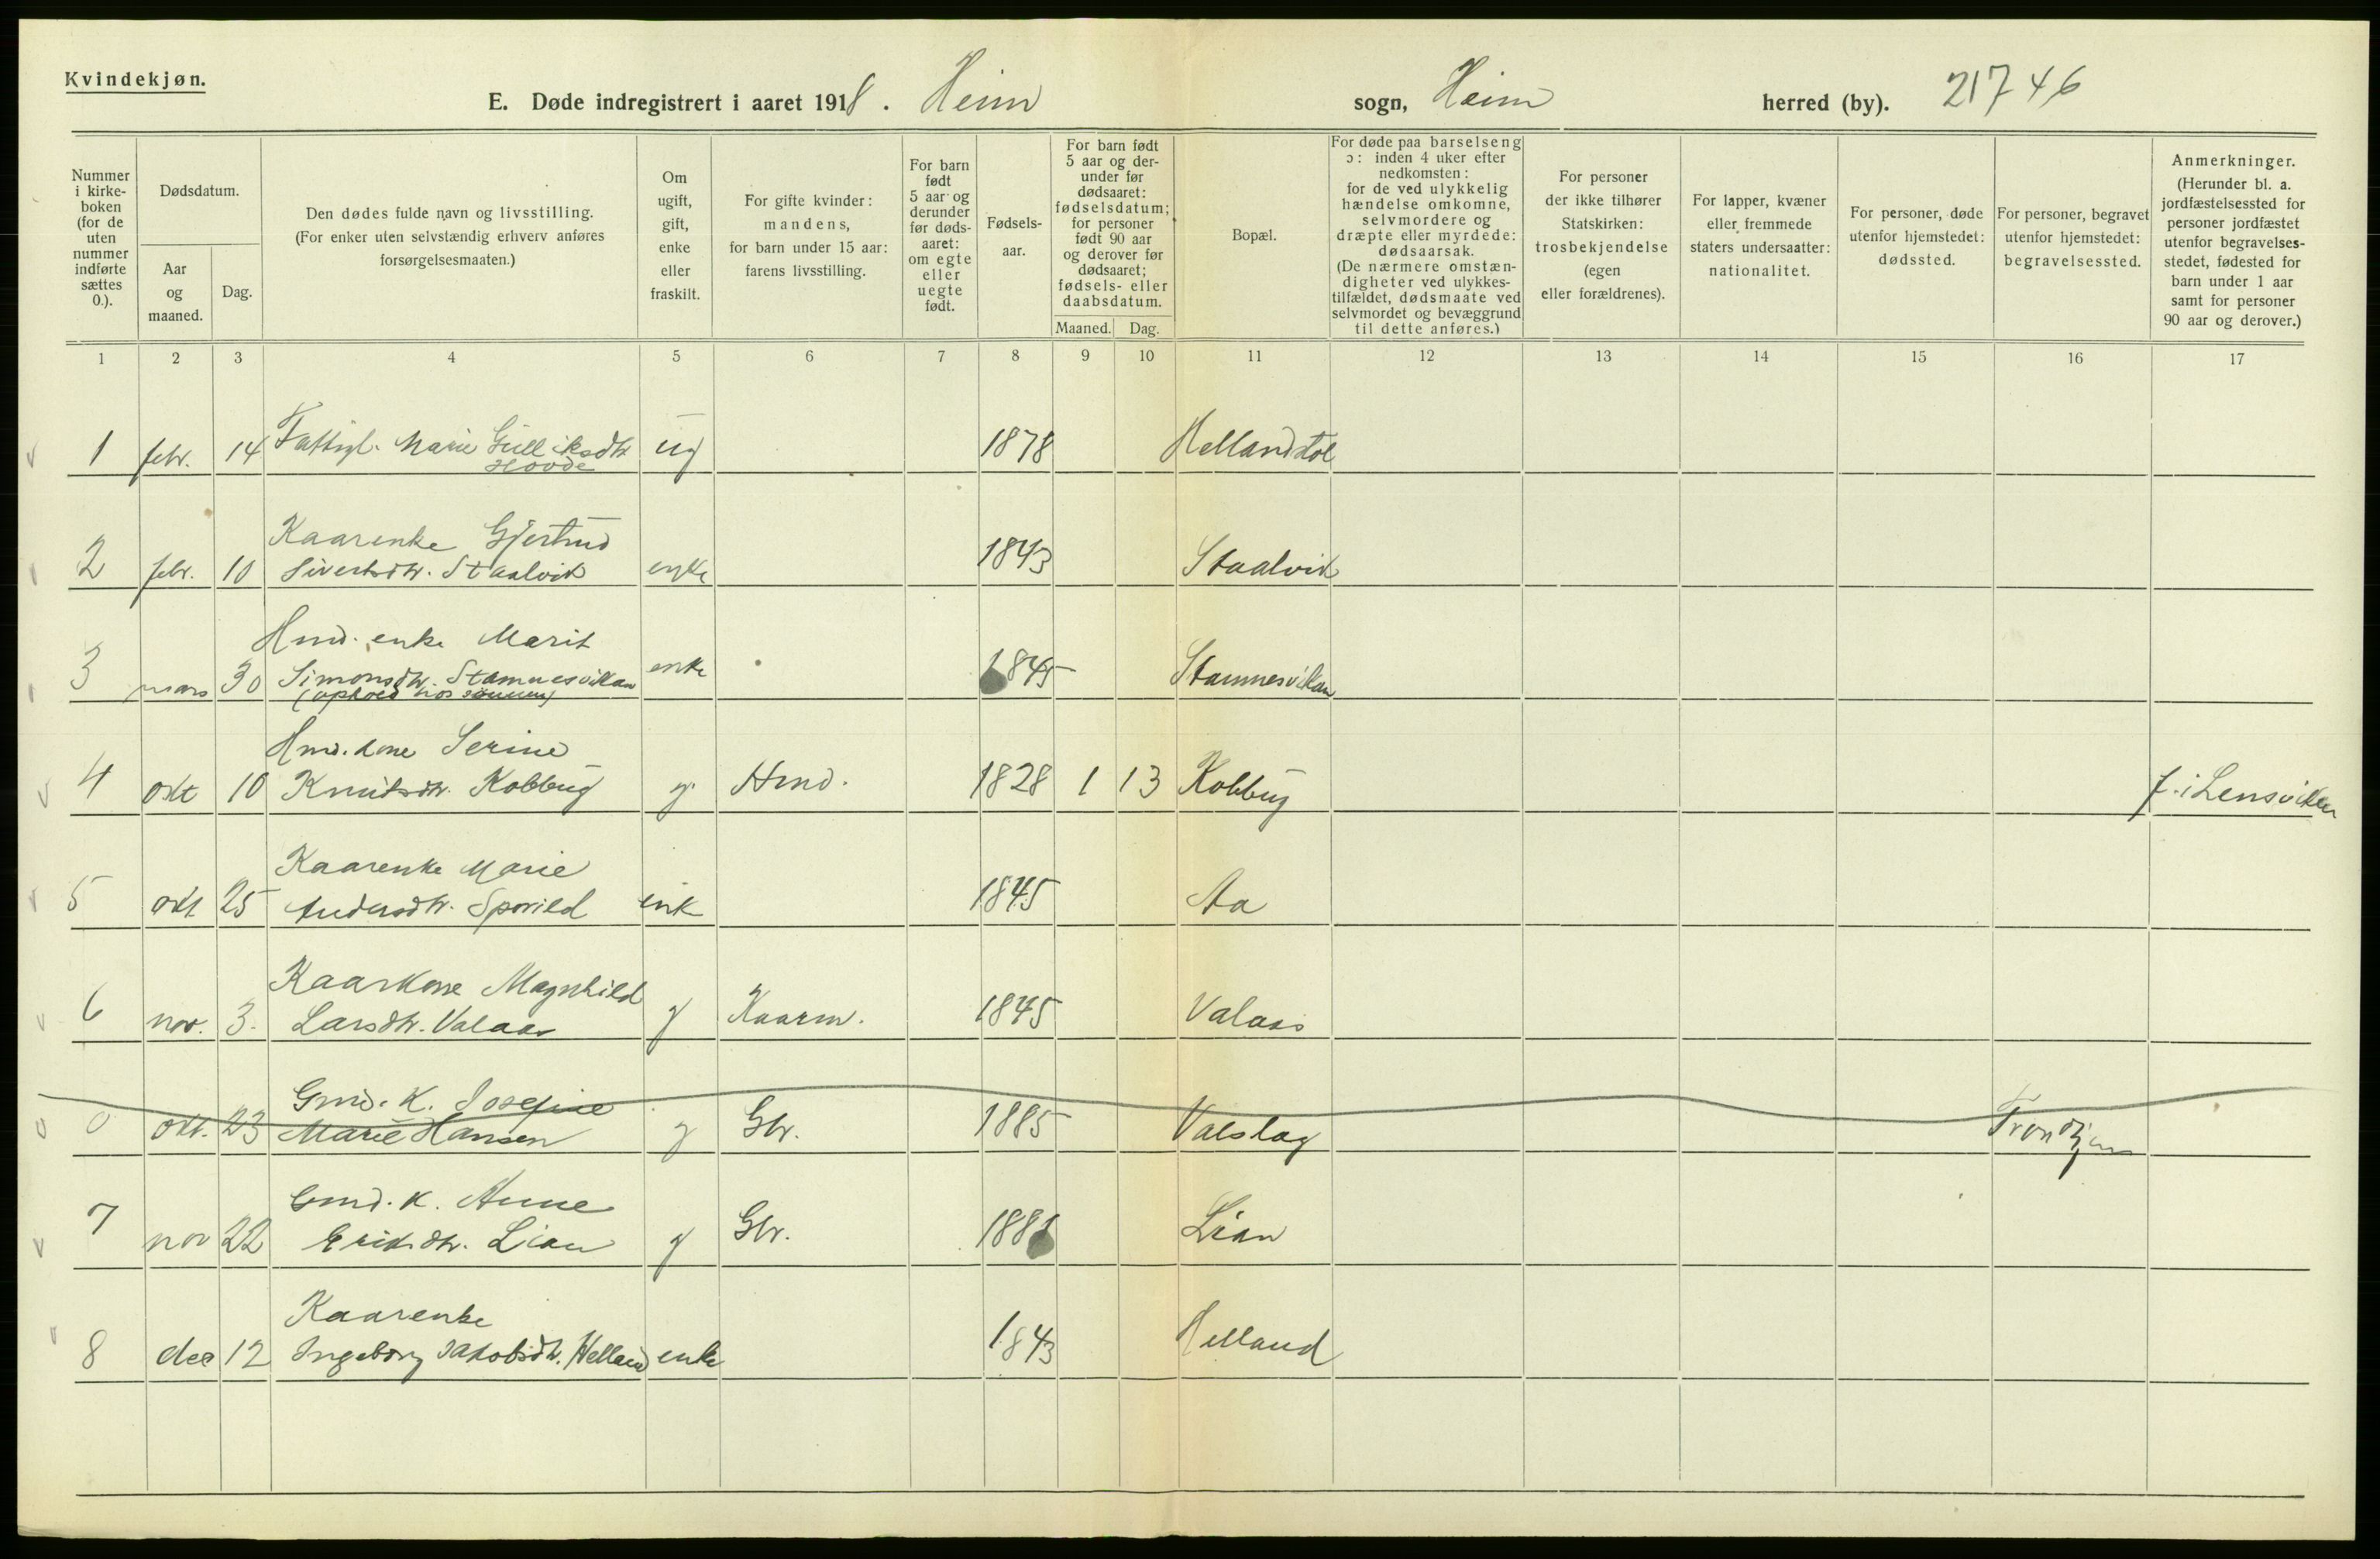 Kvindekjøn.
E. Døde indregistrert i aaret 1918. Heim sogn, Heim herred (by). 21746
Nummer i kirke-boken (for de uten nummer indførte sættes 0.).
Dødsdatum.
Aar og maaned.
Dag.
Den dødes fulde navn og livsstilling.
(For enker uten selvstændig erhverv anføres forsørgelsesmaaten.)
Om ugift, gift, enke eller fraskilt.
For gifte kvinder: mandens, for barn under 15 aar: farens livsstilling.
For barn født 5 aar og derunder før døds-aaret: om egte eller uegte født.
Fødsels-aar.
For barn født 5 aar og der-under før dødsaaret: fødselsdatum; for personer født 90 aar og derover før dødsaaret; fødsels- eller daabsdatum.
Maaned. Dag.
Bopæl.
For døde paa barselseng ɔ: inden 4 uker efter nedkomsten: for de ved ulykkelig hændelse omkomne, selvmordere og dræpte eller myrdede: dødsaarsak.
(De nærmere omstæn-digheter ved ulykkes-tilfældet, dødsmaate ved selvmordet og bevæggrund til dette anføres.)
For personer der ikke tilhører Statskirken: trosbekjendelse (egen eller forældrenes).
For lapper, kvæner eller fremmede staters undersaatter: nationalitet.
For personer, døde utenfor hjemstedet: dødssted.
For personer, begravet utenfor hjemstedet: begravelsessted.
Anmerkninger.
(Herunder bl. a. jordfæstelsessted for personer jordfæstet utenfor begravelses-stedet, fødested for barn under 1 aar samt for personer 90 aar og derover.)
1 2 3 4 5 6 7 8 9 10 11 12 13 14 15 16 17
1 febr. 14 Fattigl. Marie Gulliksdtr ug 1878
Hovde
Kaarenke Gjertrud
2 febr. 10 Sivertsdtr. Staalvik enke 1843 Staalvik
Hmd. enke Marit
3 mars 30 Simonsdtr. Stamnesvikan enke 1845 Stamnesvikan
(ophold hos sønnen)
Hmd. kone Serine
4 okt 10 Knutsdtr. Kobbug g. Hmd. 1828 1 13 Kobbug f. i Lensviken
Kaarenke Marie
5 okt 25 Andersdtr. Sporild enk 1845 Aa
Kaarkone Magnhild
6 nov. 3. Larsdtr. Valaas g Kaarm. 1845 Valaas
Gmd. K. Josefine
0 okt. 23 Marie Hansen g Gbr. 1885 Valslag Trondhjem
Gmd. K. Anne
7 nov 22 Eriksdtr. Lian g Gbr. 1881 Lian
Kaarenke
8 dec 12 Ingeborg Jakobsdtr. Helland enke 1843 Helland